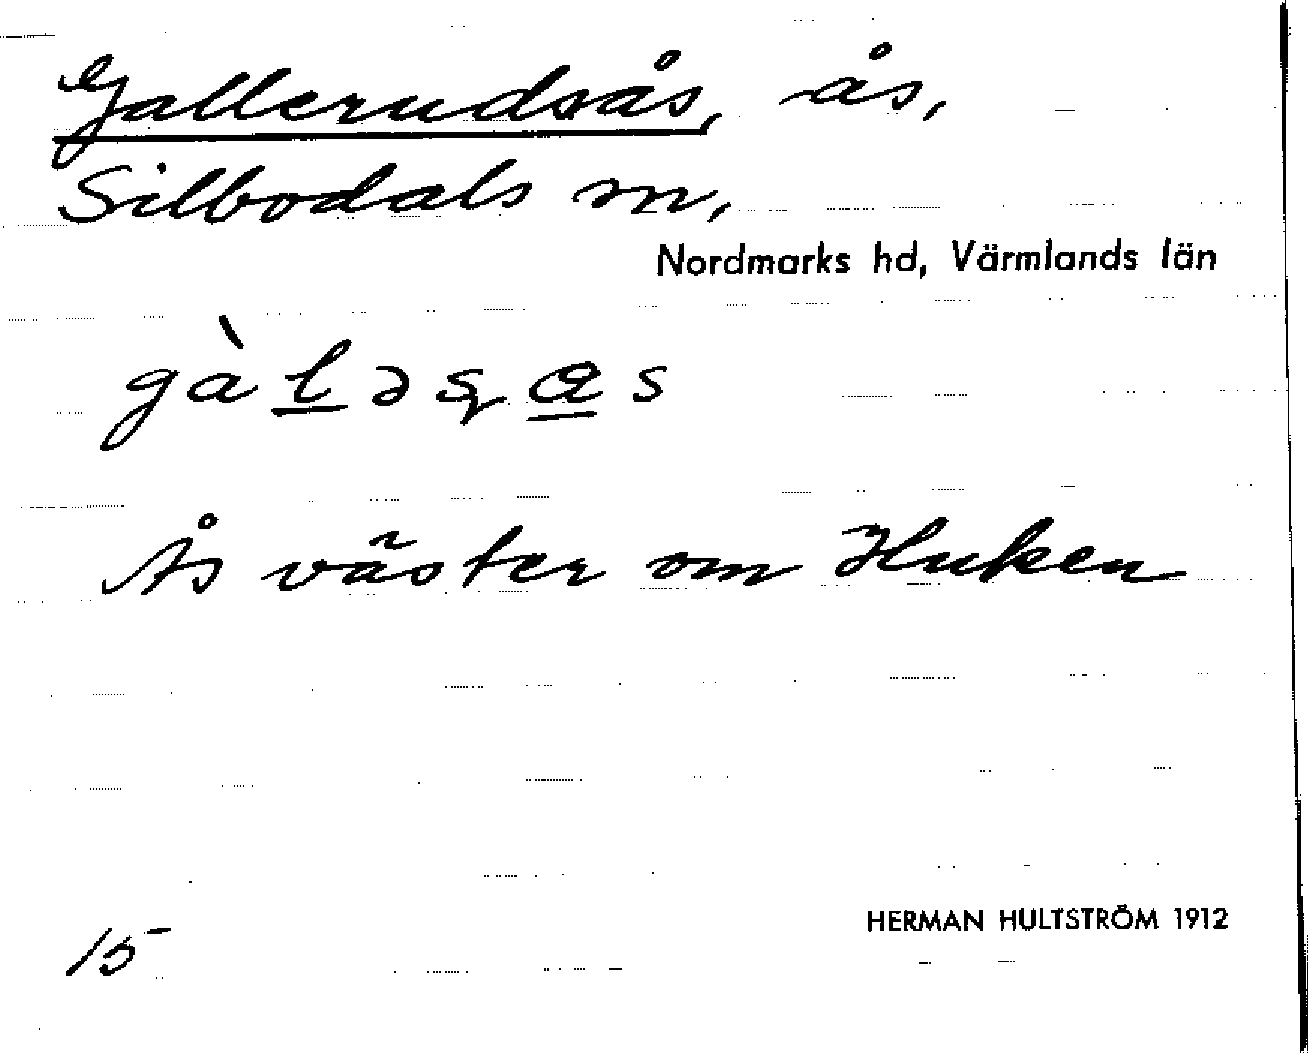 Gallerudsås, ås,
Silbodals sn,
Nordmarks hd, Värmlands län
gàləʂɑs
Ås väster om Huken
HERMAN HULTSTRÖM 1912
15